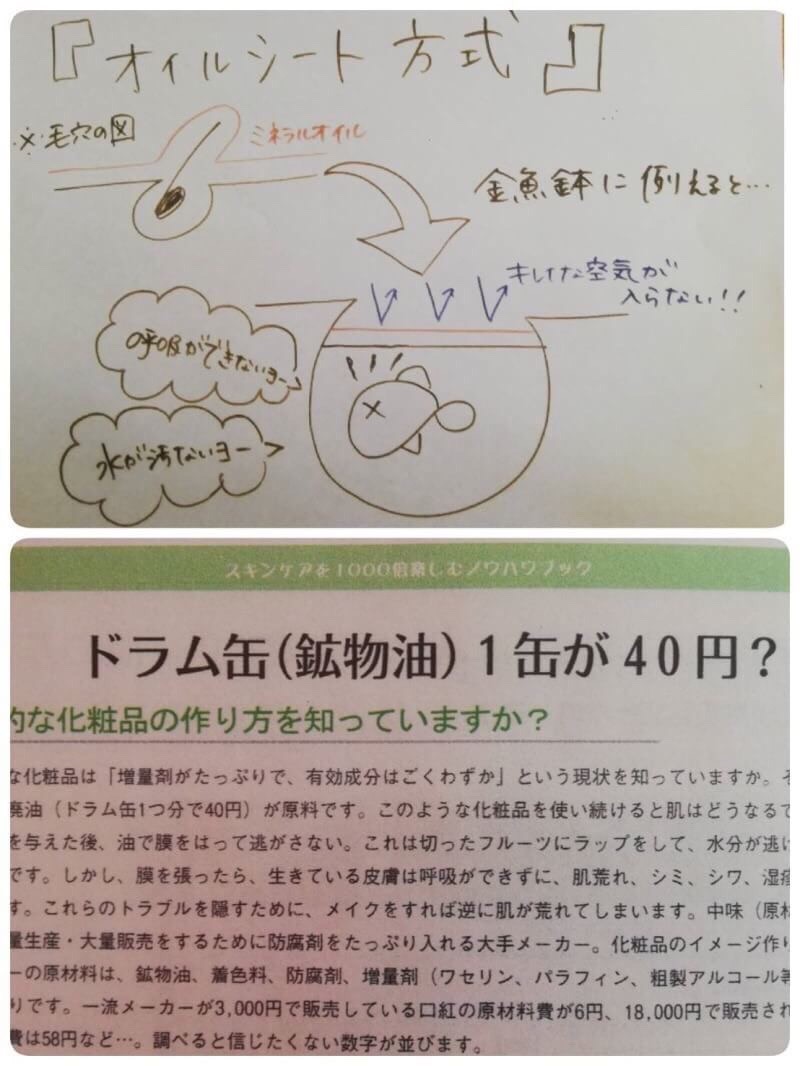 『オイルシート方式』
※毛穴の図
ミネラルオイル
金魚鉢に例えると…
キレイな空気が
入らない!!
呼吸ができないヨー
水が汚ないヨー
スキンケアを1000倍楽しむノウハウブック
ドラム缶(鉱物油)1缶が40円?
的な化粧品の作り方を知っていますか?
な化粧品は「増量剤がたっぷりで、有効成分はごくわずか」という現状を知っていますか。そ
廃油(ドラム缶1つ分で40円)が原料です。このような化粧品を使い続けると肌はどうなるで
を与えた後、油で膜をはって逃がさない。これは切ったフルーツにラップをして、水分が逃げ
です。しかし、膜を張ったら、生きている皮膚は呼吸ができずに、肌荒れ、シミ、シワ、湿疹
す。これらのトラブルを隠すために、メイクをすれば逆に肌が荒れてしまいます。中味(原材
量生産・大量販売をするために防腐剤をたっぷり入れる大手メーカー。化粧品のイメージ作り
ーの原材料は、鉱物油、着色料、防腐剤、増量剤(ワセリン、パラフィン、粗製アルコール等
りです。一流メーカーが3,000円で販売している口紅の原材料費が6円、18,000円で販売され
費は58円など…。調べると信じたくない数字が並びます。